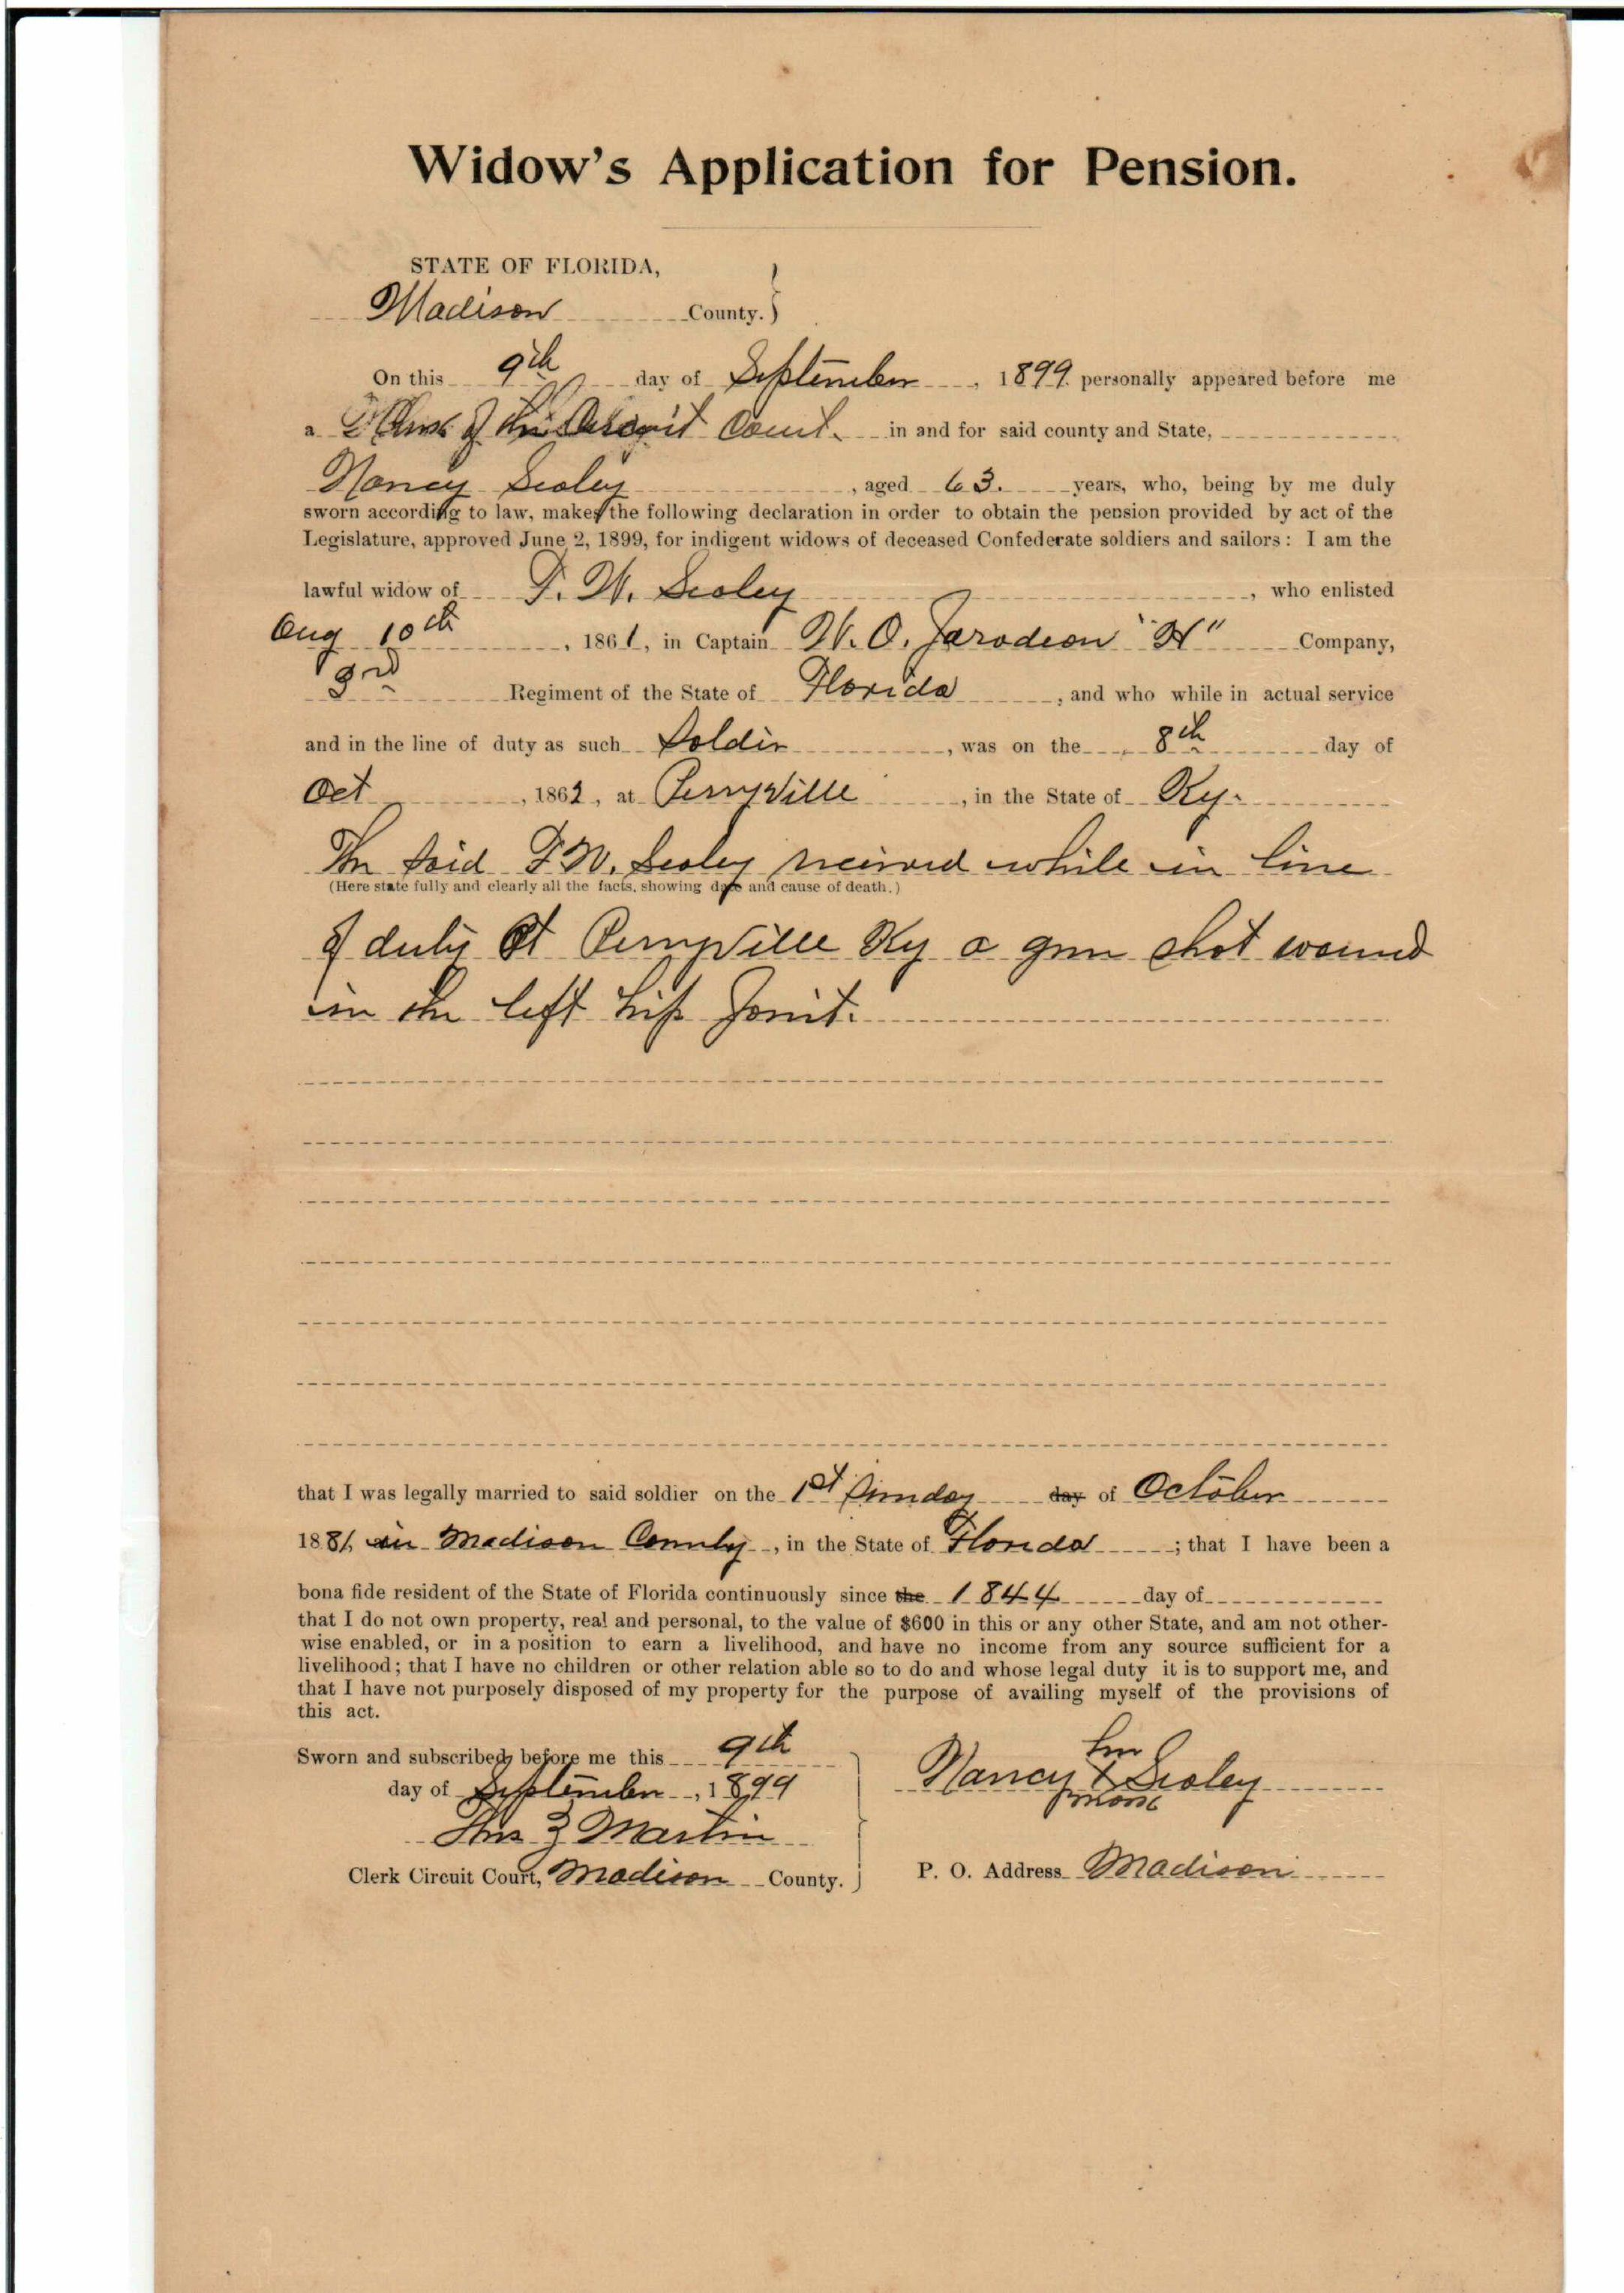 Widow's Application for Pension.
STATE OF FLORIDA,
Madison County.
On this 9th day of September, 1899 personally appeared before me
a Clerk of the Circuit Court in and for said county and State,
Nancy Sealey, aged 63. years, who, being by me duly
sworn according to law, makes the following declaration in order to obtain the pension provided by act of the
Legislature, approved June 2, 1899, for indigent widows of deceased Confederate soldiers and sailors: I am the
lawful widow of F. W. Sealey, who enlisted
Aug 10th, 1861, in Captain W. O. "H" Company,
3rd Regiment of the State of Florida, and who while in actual service
and in the line of duty as such Soldier, was on the 8th day of
Oct, 1862, at Perryville, in the State of Ky.
The said F. W. Sealey received while in line
(Here state fully and clearly all the facts, showing date and cause of death.)
of duty at Perryville Ky a gun shot wound
in the left hip joint.
that I was legally married to said soldier on the 1st Sunday day of October
1881, in Madison County, in the State of Florida; that I have been a
bona fide resident of the State of Florida continuously since the 1844 day of
that I do not own property, real and personal, to the value of $600 in this or any other State, and am not other-
wise enabled, or in a position to earn a livelihood, and have no income from any source sufficient for a
livelihood; that I have no children or other relation able so to do and whose legal duty it is to support me, and
that I have not purposely disposed of my property for the purpose of availing myself of the provisions of
this act.
Sworn and subscribed before me this 9th
day of September, 1899
Martin
Clerk Circuit Court, Madison County.
her
Nancy X Sealey
mark
P. O. Address Madison